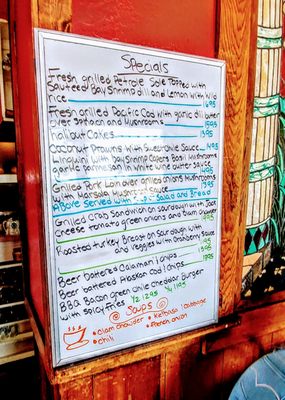 Specials
Fresh grilled Petrole Sole topped with
Sauteed Bay Shrimp dill and Lemon with Wild
rice 1695
Fresh grilled Pacific Cod with garlic dill butter
over spinach and Mushrooms
Halibut Cakes 1395
Coconut Prawns with Sweet chile Sauce 1495
Linguini with Bay Shrimp Capers Basil Mushrooms
garlic parmesan in white wine butter sauce
Grilled Pork Loin over grilled onions Mushrooms
with Marsala Mustard Sauce
Above Served with Soup or Salad and Bread
Grilled Crab Sandwich on Sourdough with Jack
Cheese tomato green onions and Clam Chowder
Roasted Turkey Breast on Sourdough with
and Veggies with Cranberry Sauce
Beer battered Calamari / Chips
Beer battered Alaskan Cod / Chips
BBQ Bacon green Chile Cheddar Burger
with Spicy fries 1/2 1295 1/4 1195
Soups
• Clam Chowder • Keilbasa / Cabbage
• Chili • French onion